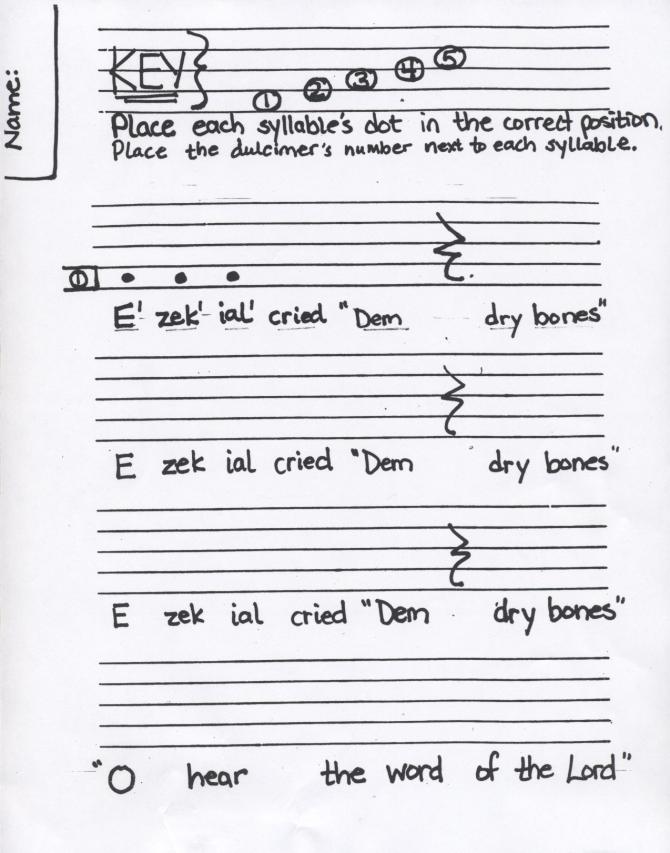 Name:
KEY
① ② ③ ④ ⑤
Place each syllable's dot in the correct position.
Place the dulcimer's number next to each syllable.
①
E' zek' ial' cried "Dem dry bones"
E zek ial cried "Dem dry bones"
E zek ial cried "Dem dry bones"
"O hear the word of the Lord"